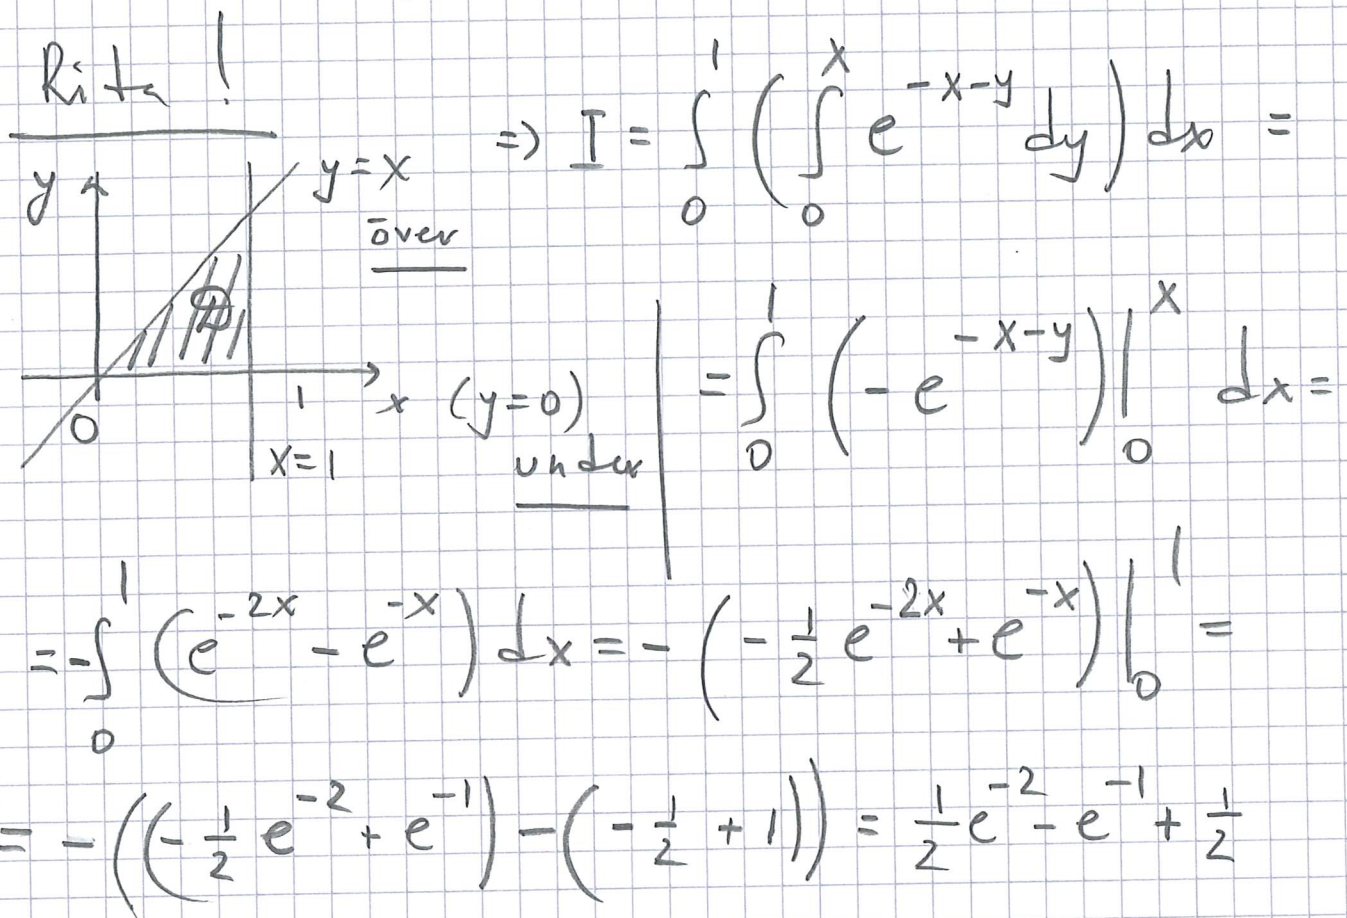 Rita !
y
y=x
över
0
1
x (y=0)
x=1
under
D
=> I = ∫₀¹ ( ∫₀ˣ e^{-x-y} dy ) dx =
= ∫₀¹ ( - e^{-x-y} ) |₀ˣ dx =
= - ∫₀¹ ( e^{-2x} - e^{-x} ) dx = - ( - 1/2 e^{-2x} + e^{-x} ) |₀¹ =
= - ( ( - 1/2 e^{-2} + e^{-1} ) - ( - 1/2 + 1 ) ) = 1/2 e^{-2} - e^{-1} + 1/2